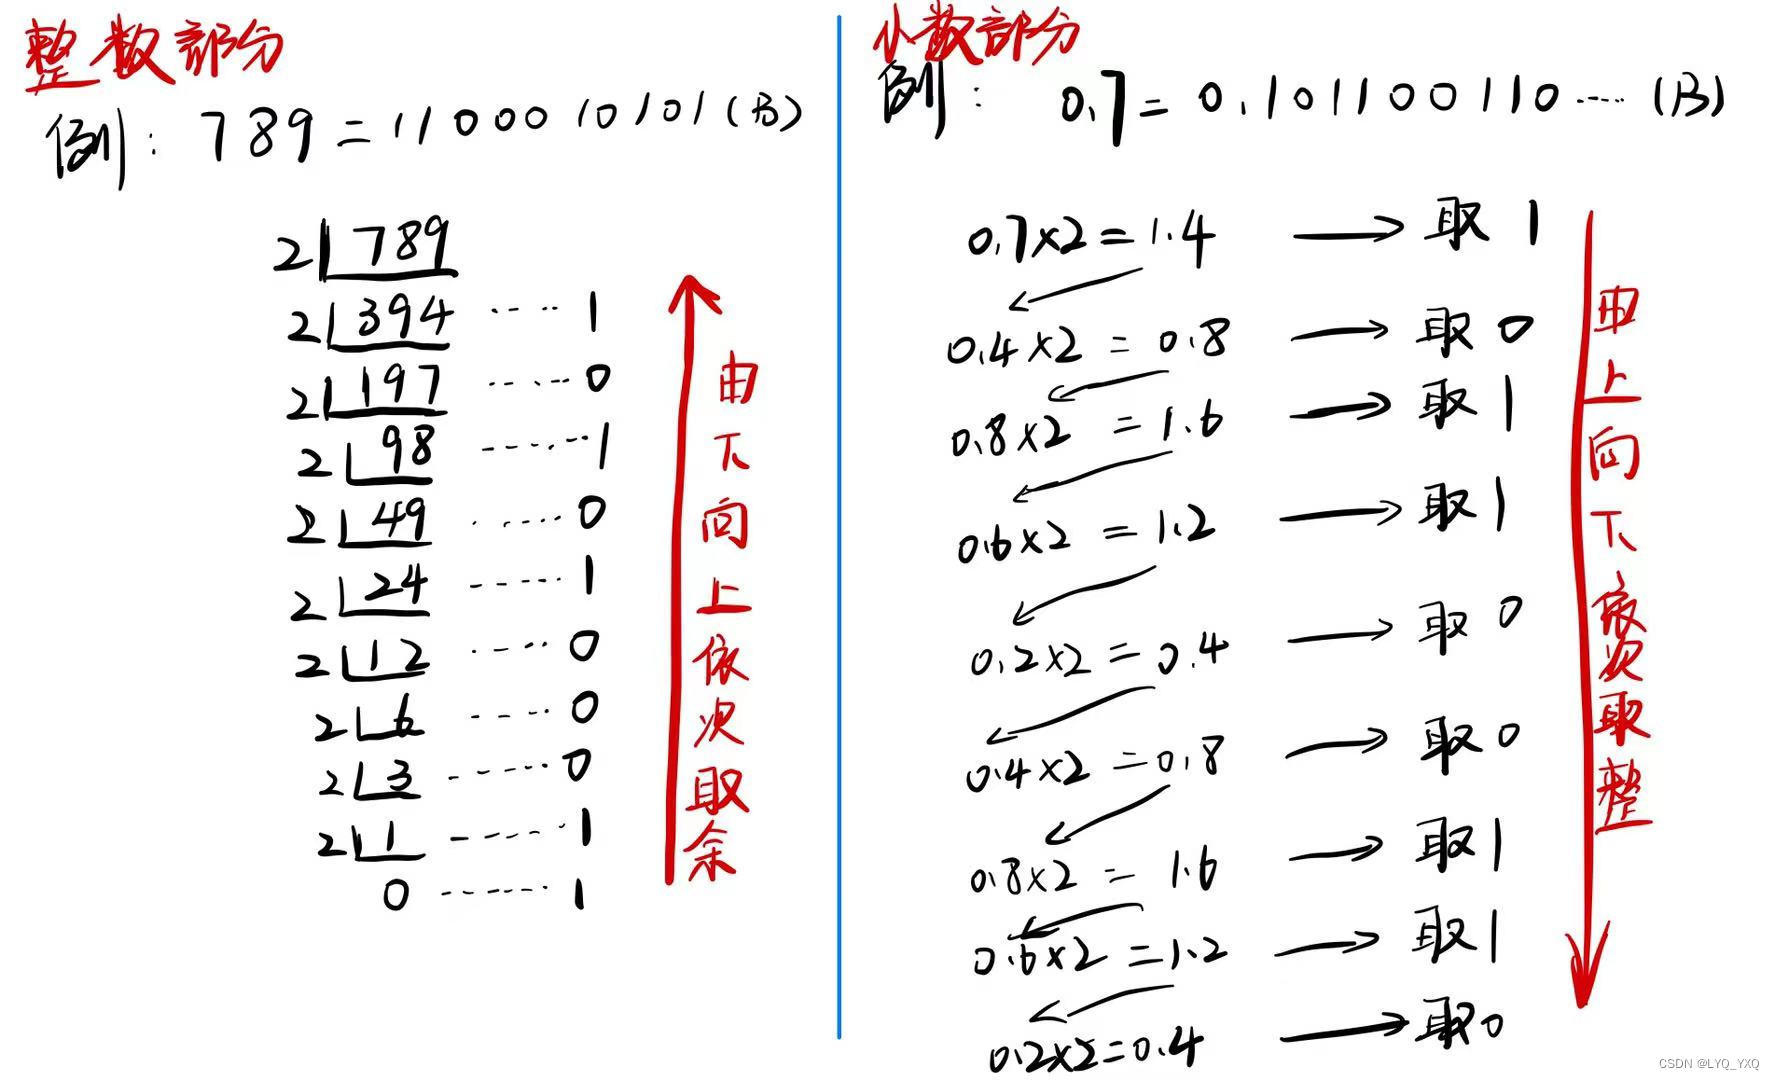 整数部分
例: 789=1100010101(B)
2 789
2 394 ····· 1
2 197 ····· 0
2 98 ······ 1
2 49 ······ 0
2 24 ······ 1
2 12 ····· 0
2 6 ····· 0
2 3 ······ 0
2 1 ······ 1
0 ······ 1
由下向上依次取余
小数部分
例: 0.7=0.101100110····(B)
0.7×2=1.4 → 取1
0.4×2=0.8 → 取0
0.8×2=1.6 → 取1
0.6×2=1.2 → 取1
0.2×2=0.4 → 取0
0.4×2=0.8 → 取0
0.8×2=1.6 → 取1
0.6×2=1.2 → 取1
0.2×2=0.4 → 取0
由上向下依次取整
CSDN @LYQ_YXQ